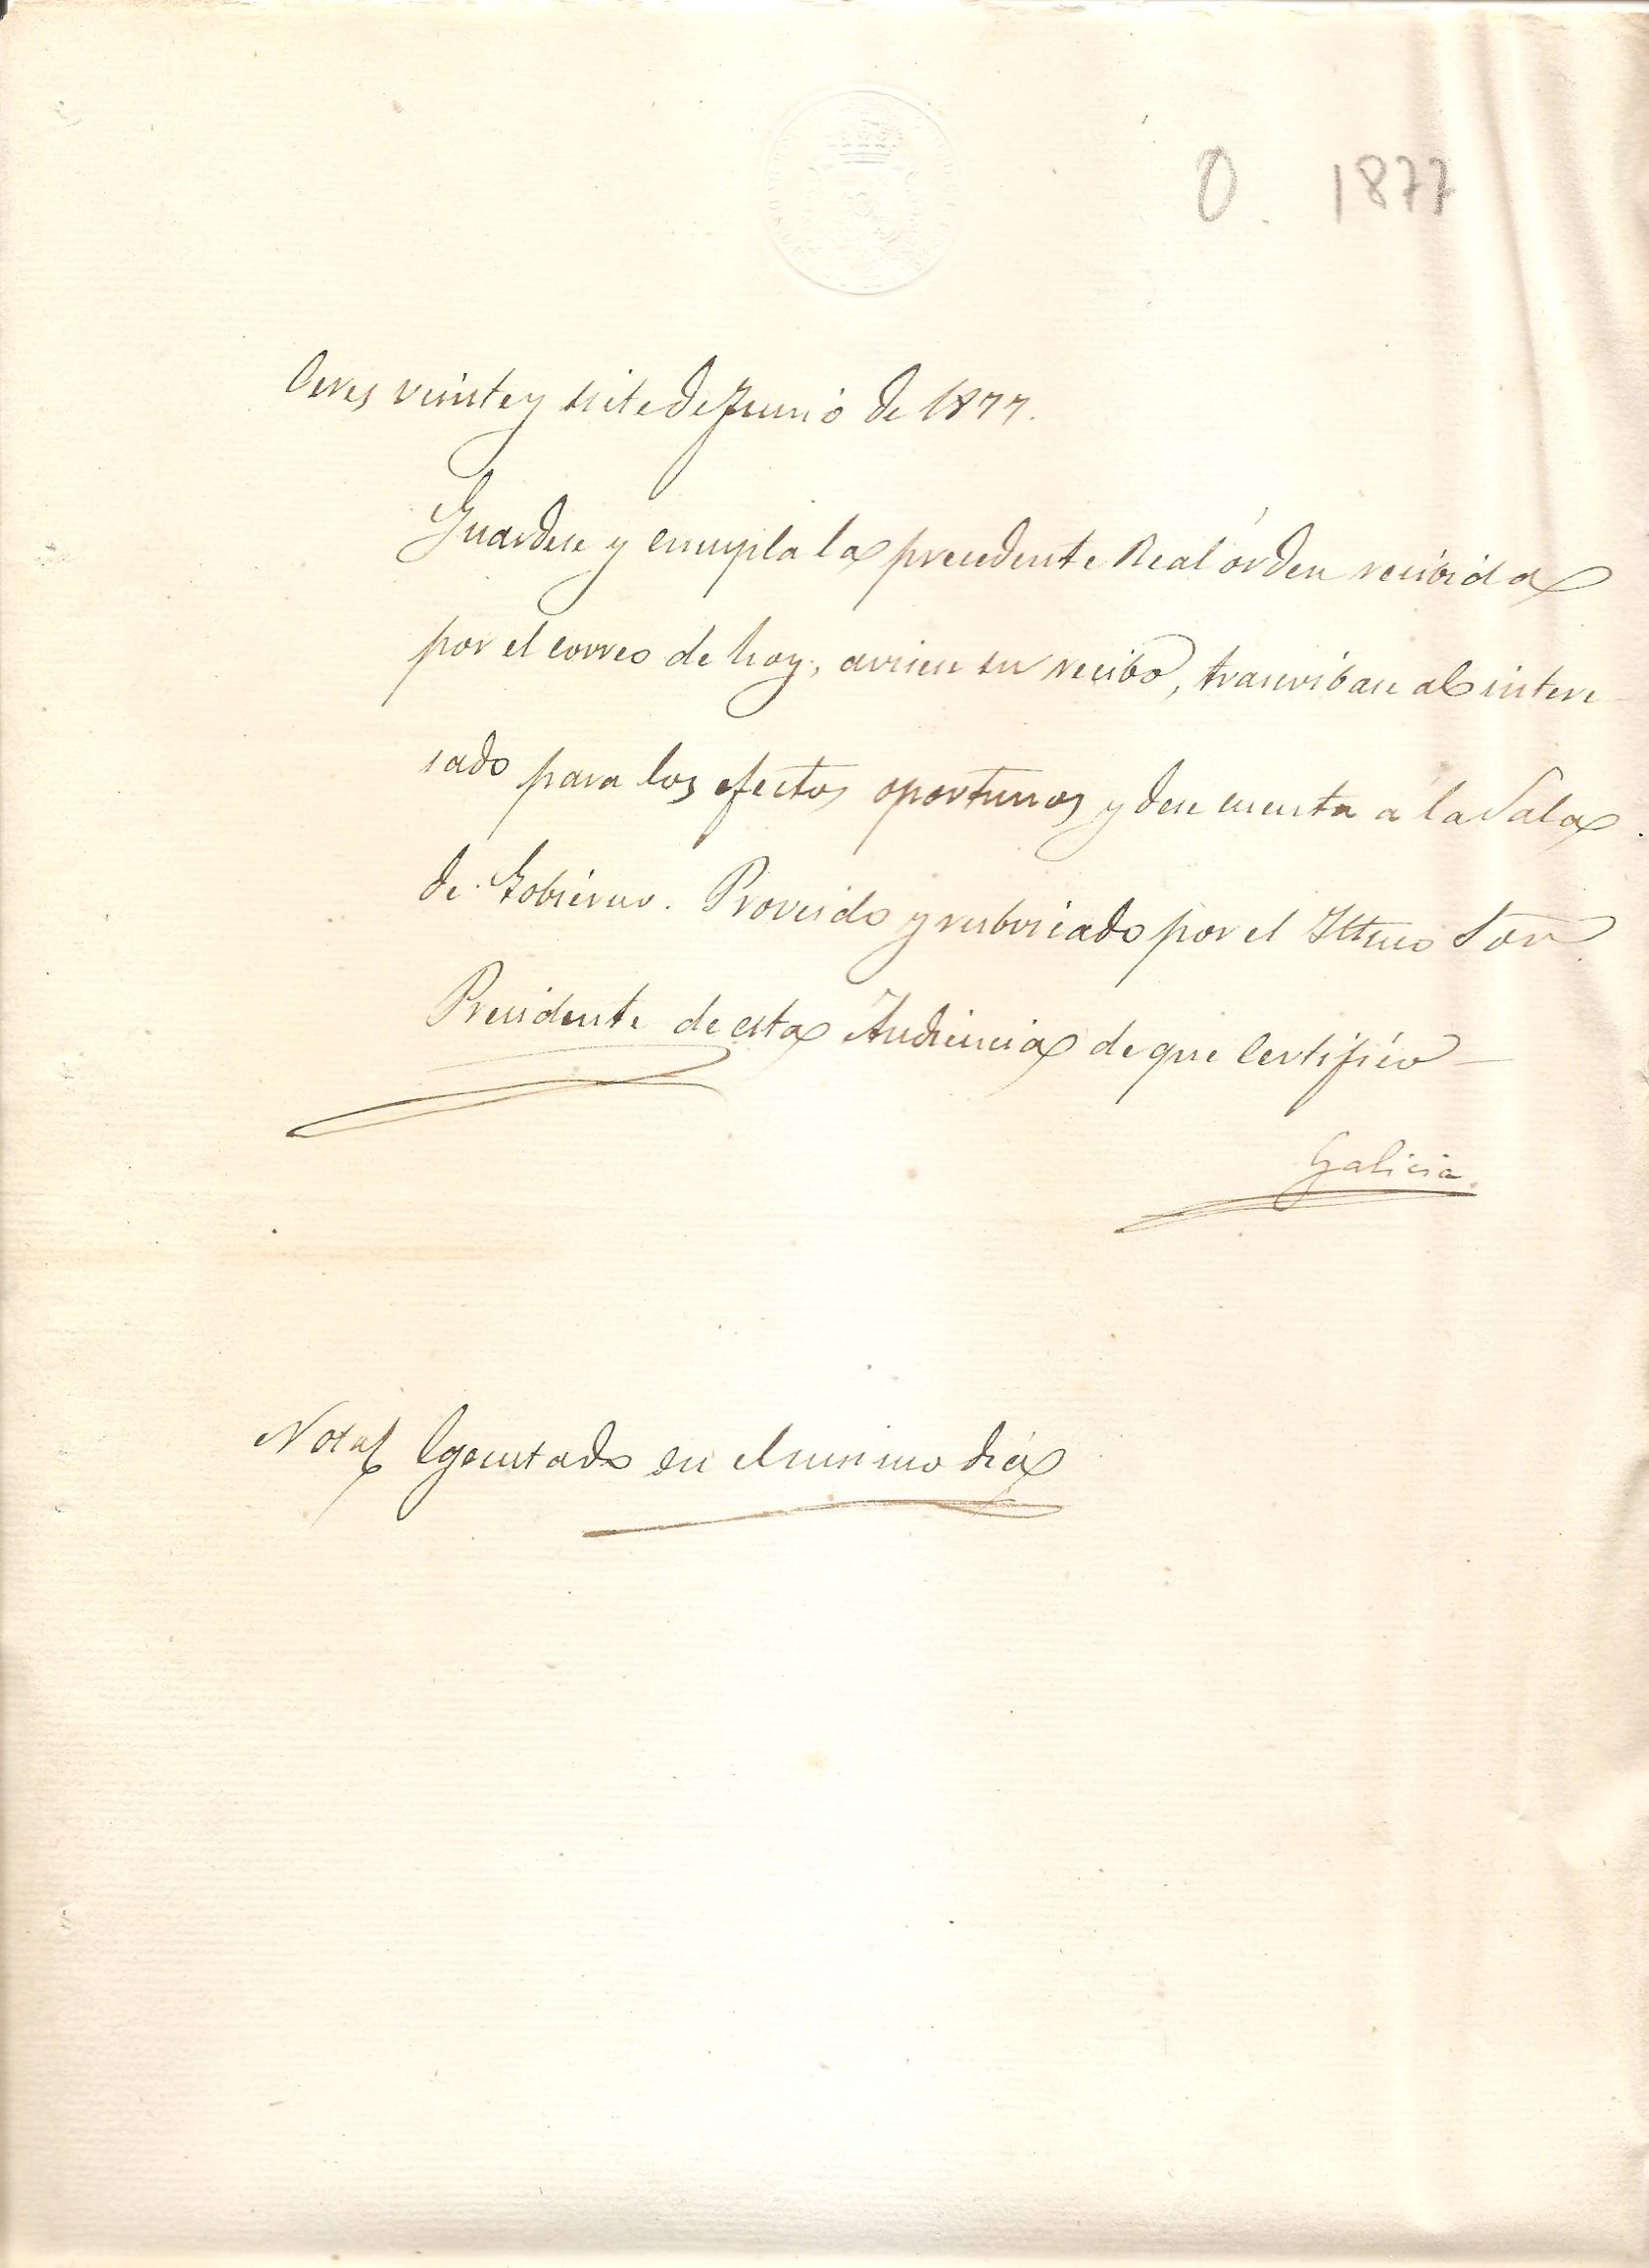 O. 1877
Ceres veinte y siete de Junio de 1877.
Guardese y cumpla la precedente Real órden recibida
por el correo de hoy, avisese su recibo, transcribase al intere
sado para los efectos oportunos y dese cuenta á la Sala
de Gobierno. Proveido y rubricado por el Iltmo Sor
Presidente de esta Audiencia de que Certifico
Galicia
Nota Egecutado en el mismo dia